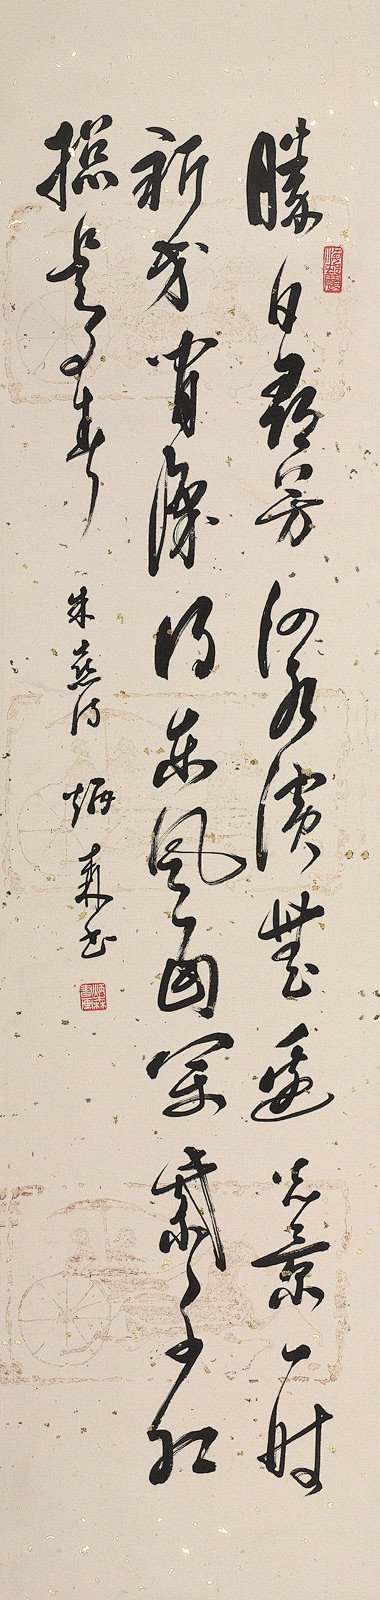 勝日尋芳泗水濱無邊光景一時
新等閒識得東風面萬紫千紅
摠是春
朱熹詩 炳森書